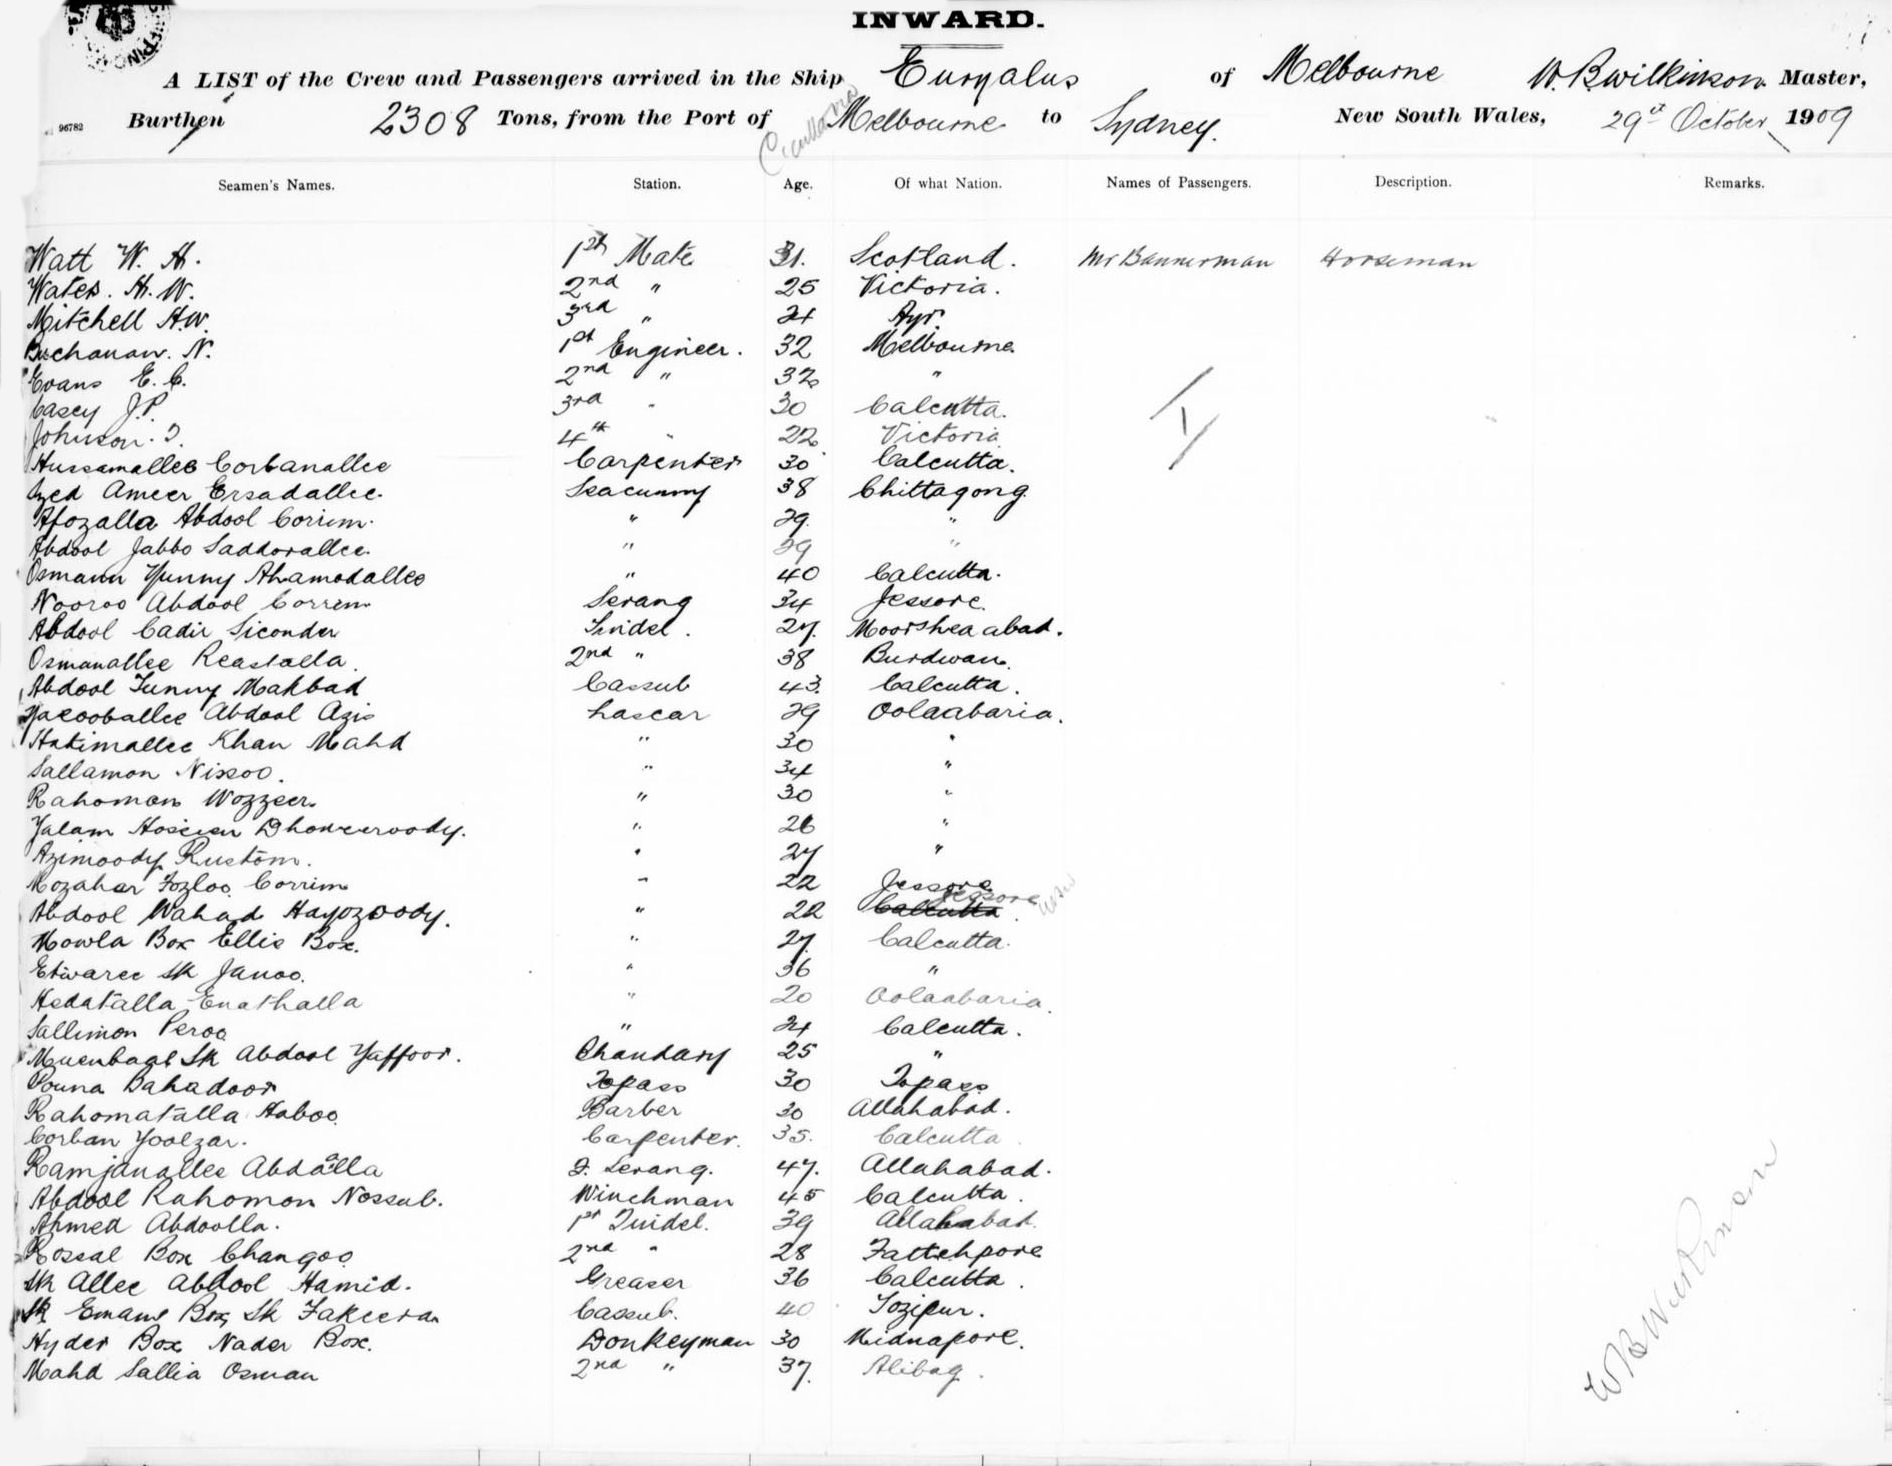 INWARD.
A LIST of the Crew and Passengers arrived in the Ship Euryalus of Melbourne W. B. Wilkinson Master,
96782 Burthen 2308 Tons, from the Port of Melbourne to Sydney. New South Wales, 29st October 1909
Seamen's Names. Station. Age. Of what Nation. Names of Passengers. Description. Remarks.
Watt W. H. 1st Mate 31. Scotland. Mr Bannerman Horseman
Wates. H. W. 2nd " 25 Victoria.
Mitchell H.W. 3rd " 24 Ayr.
Buchanan. N. 1st Engineer. 32 Melbourne
Evans E. C. 2nd " 32 "
Casey J.P. 3rd " 30 Calcutta.
Johnson. 4th " 22 Victoria
Hussamallee Corbanallee Carpenter 30 Calcutta.
Syed Ameer Ersadallee. Seacunny 38 Chittagong
Afozalla Abdool Corrim. " 29. "
Abdool Jabbo Saddorallee. " 29 "
Osmann Yunny Ahamodallee " 40 Calcutta.
Nooroo Abdool Corrim Serang 34 Jessore.
Abdool Cadir Siconder Tindel. 27. Moorsheaabad.
Osmanallee Reastalla. 2nd " 38 Burdwan.
Abdool Yunny Makbad Cassub 43. Calcutta.
Yacooballee Abdool Azis Lascar 29 Oolaabaria.
Hakimallee Khan Mahd " 30 "
Sallamon Nissoo. " 34 "
Rahoman Wozzeer. " 30 "
Yalam Hosien " 26 "
Azimoody Rustom. " 27 "
Mozahar Fozloo Corrim " 22 Jessore
Abdool Wahad Hayozoody. " 22 Calcutta Jessore
Mowla Box Ellis Box. " 27. Calcutta.
Etwaree Sk Janoo. " 36 "
Hedatalla Enathalla " 20 Oolaabaria.
Sallimon Peroo " 24 Calcutta.
Sk Abdool Yaffoor. Bhandary 25 "
Pouna Bahadoor Topass 30 Topass
Rahomatalla Haboo Barber 30 Allahabad.
Corban Yoolzar. Carpenter. 35. Calcutta
Ramjanallee Abdoolla F. Serang. 47. Allahabad.
Abdool Rahomon Nossub. Winchman 45 Calcutta.
Ahmed Abdoolla. 1st Tindel. 39 Allahabad.
Rossal Box Changoo 2nd " 28 Fattehpore
Sk Allee Abdool Hamid. Greaser 36 Calcutta.
Sk Emam Box Sk Fakeera Cassub. 40 Yozipur.
Hyder Box Nader Box. Donkeyman 30 Midnapore.
Mahd Sallia Osman 2nd " 37. Alibag.
W B Wilkinson